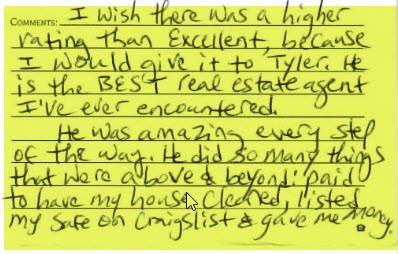 COMMENTS: I wish there was a higher
rating than Excellent, because
I would give it to Tyler. He
is the BEST real estate agent
I've ever encountered.
He was amazing every step
of the way. He did so many things
that were above & beyond: paid
to have my house cleaned, listed
my safe on Craigslist & gave me money.